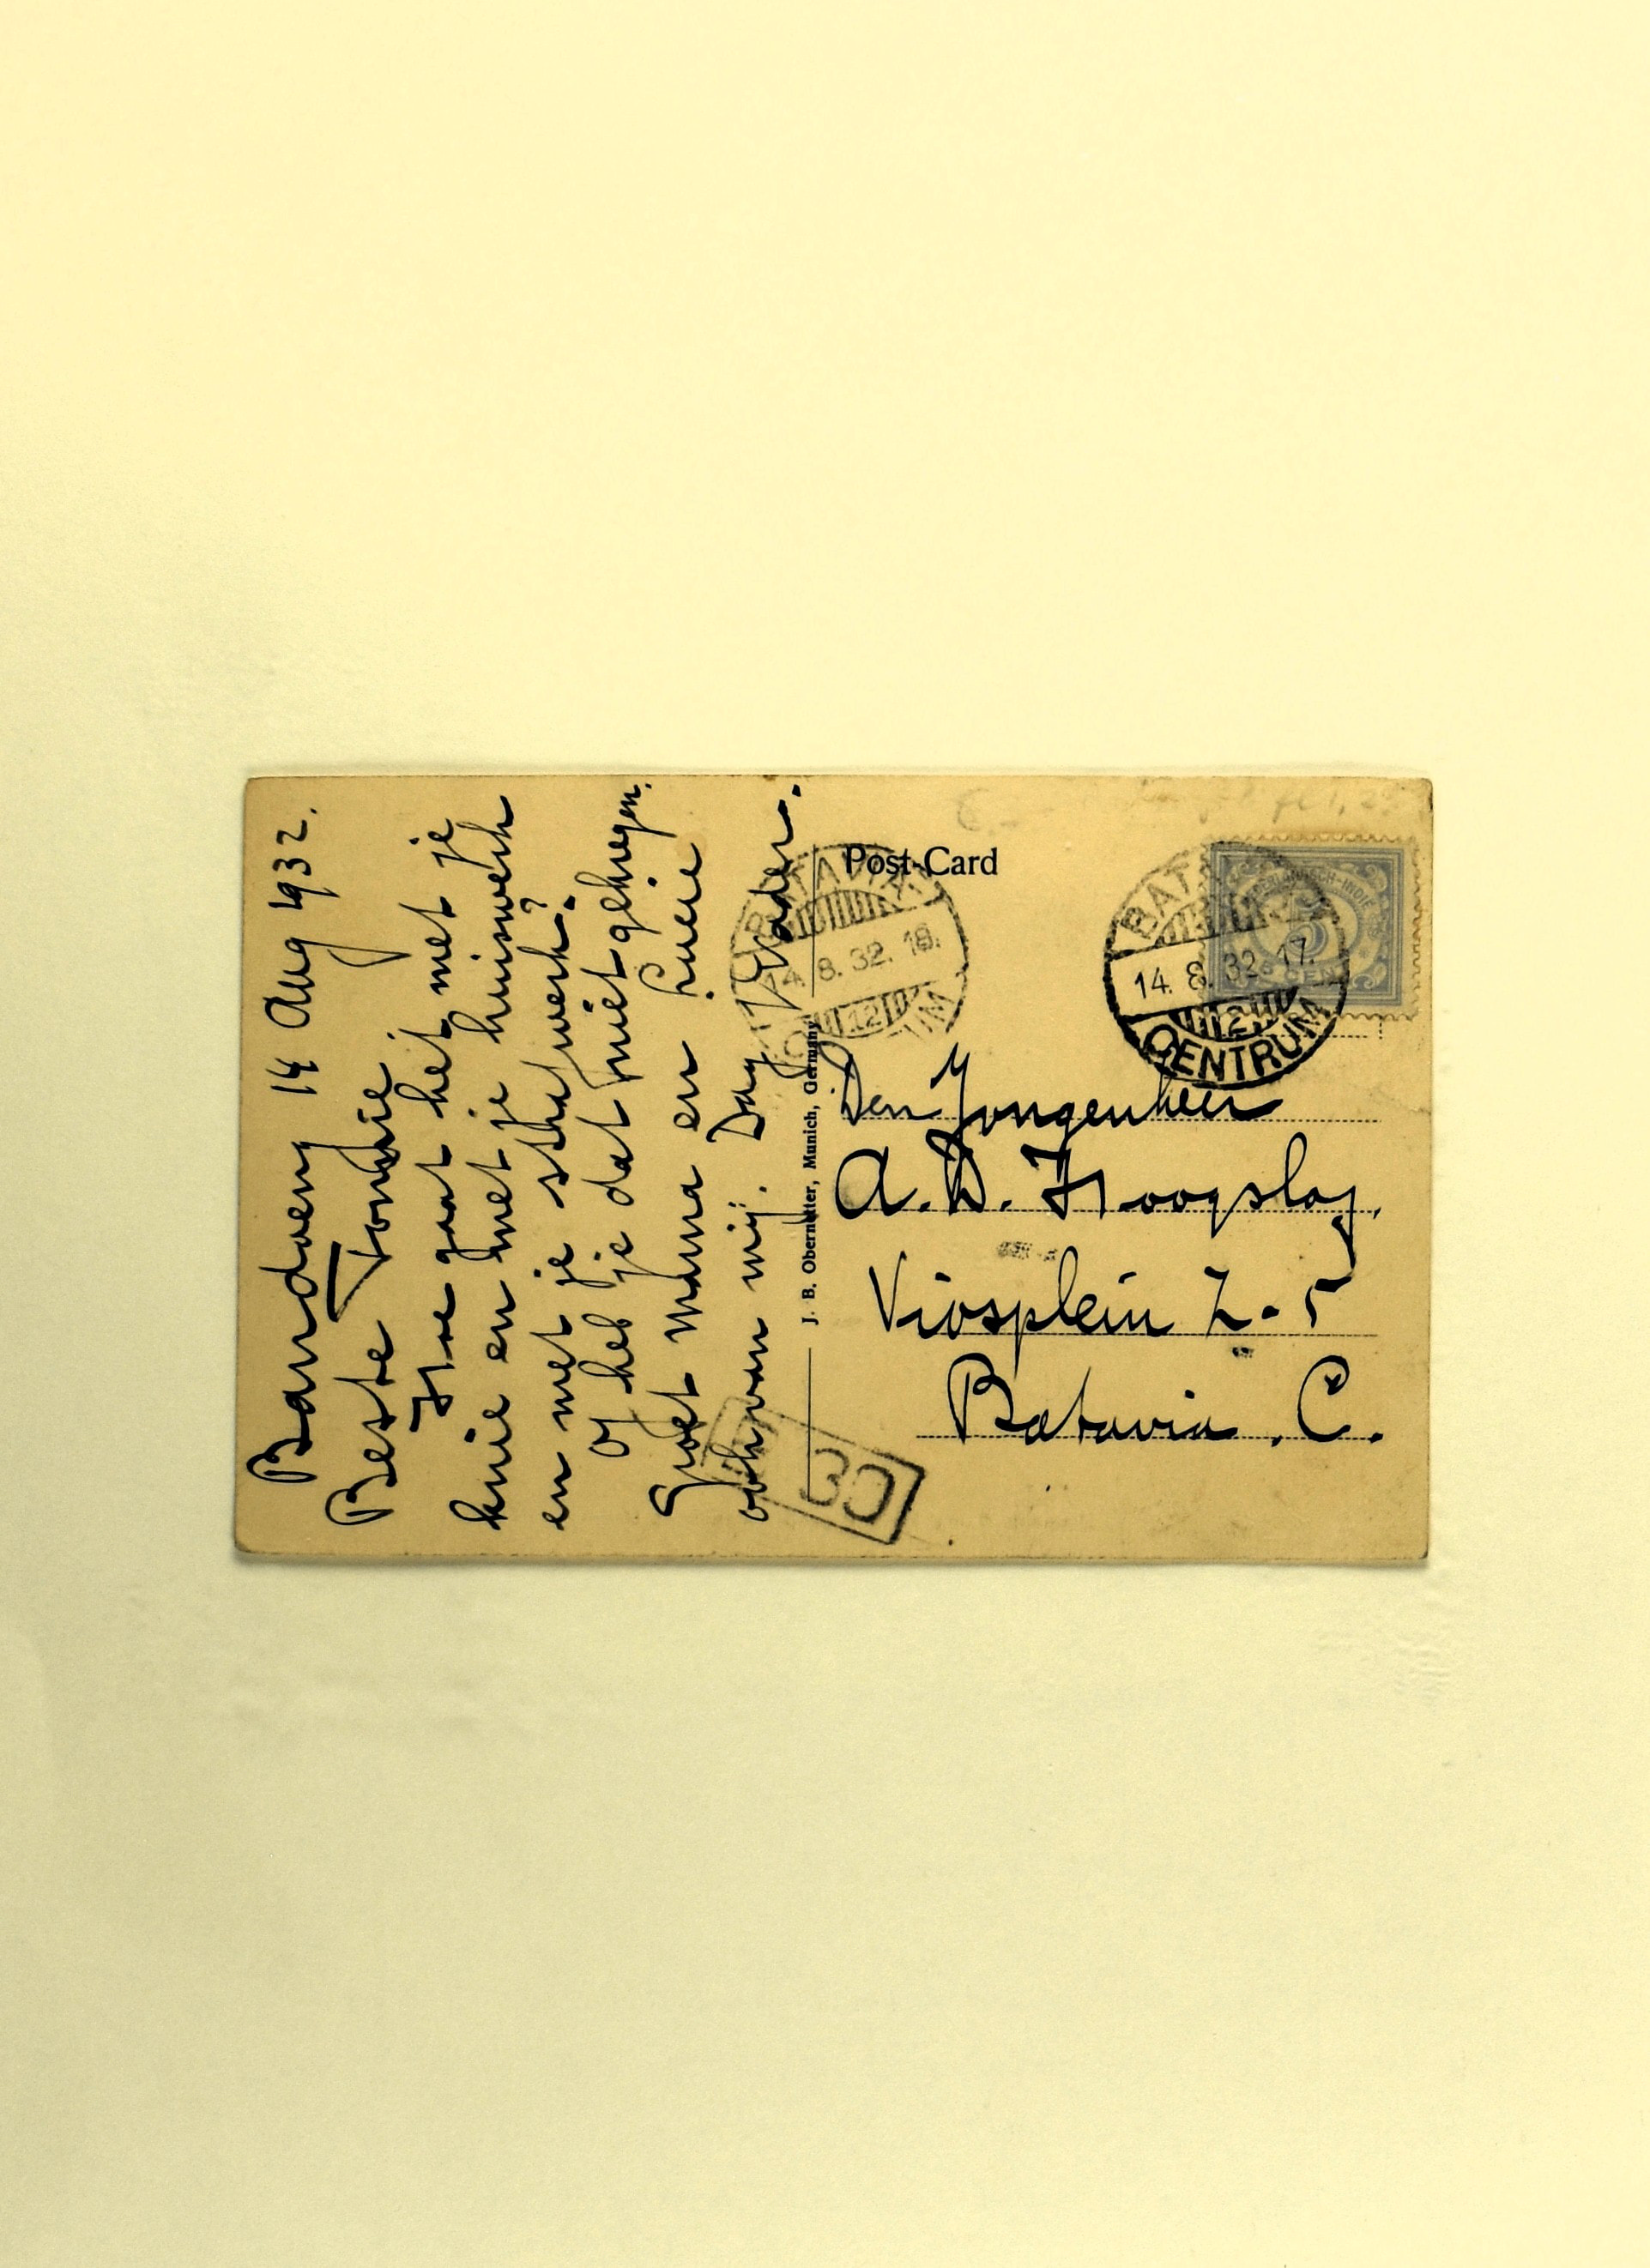 Bandoeng 14 Aug 1932.
Beste Tonnie
Hoe gaat het met je
knie en met je huiswerk
en met je strafwerk?
Of heb je dat niet gekregen.
Groet mama en Lucie
ook van mij. Dag Vader.
J. B. Obernetter, Munich, Germany
Post-Card
BATAVIA
14. 8. 32. 18.
12
CENTRUM
NEDERLANDSCH-INDIË
5
5 CENT
BATAVIA
14. 8. 32. 17.
12
CENTRUM
Den Jongenheer
A. D. Hoogslag.
Viosplein Z-5
Batavia . C.
30